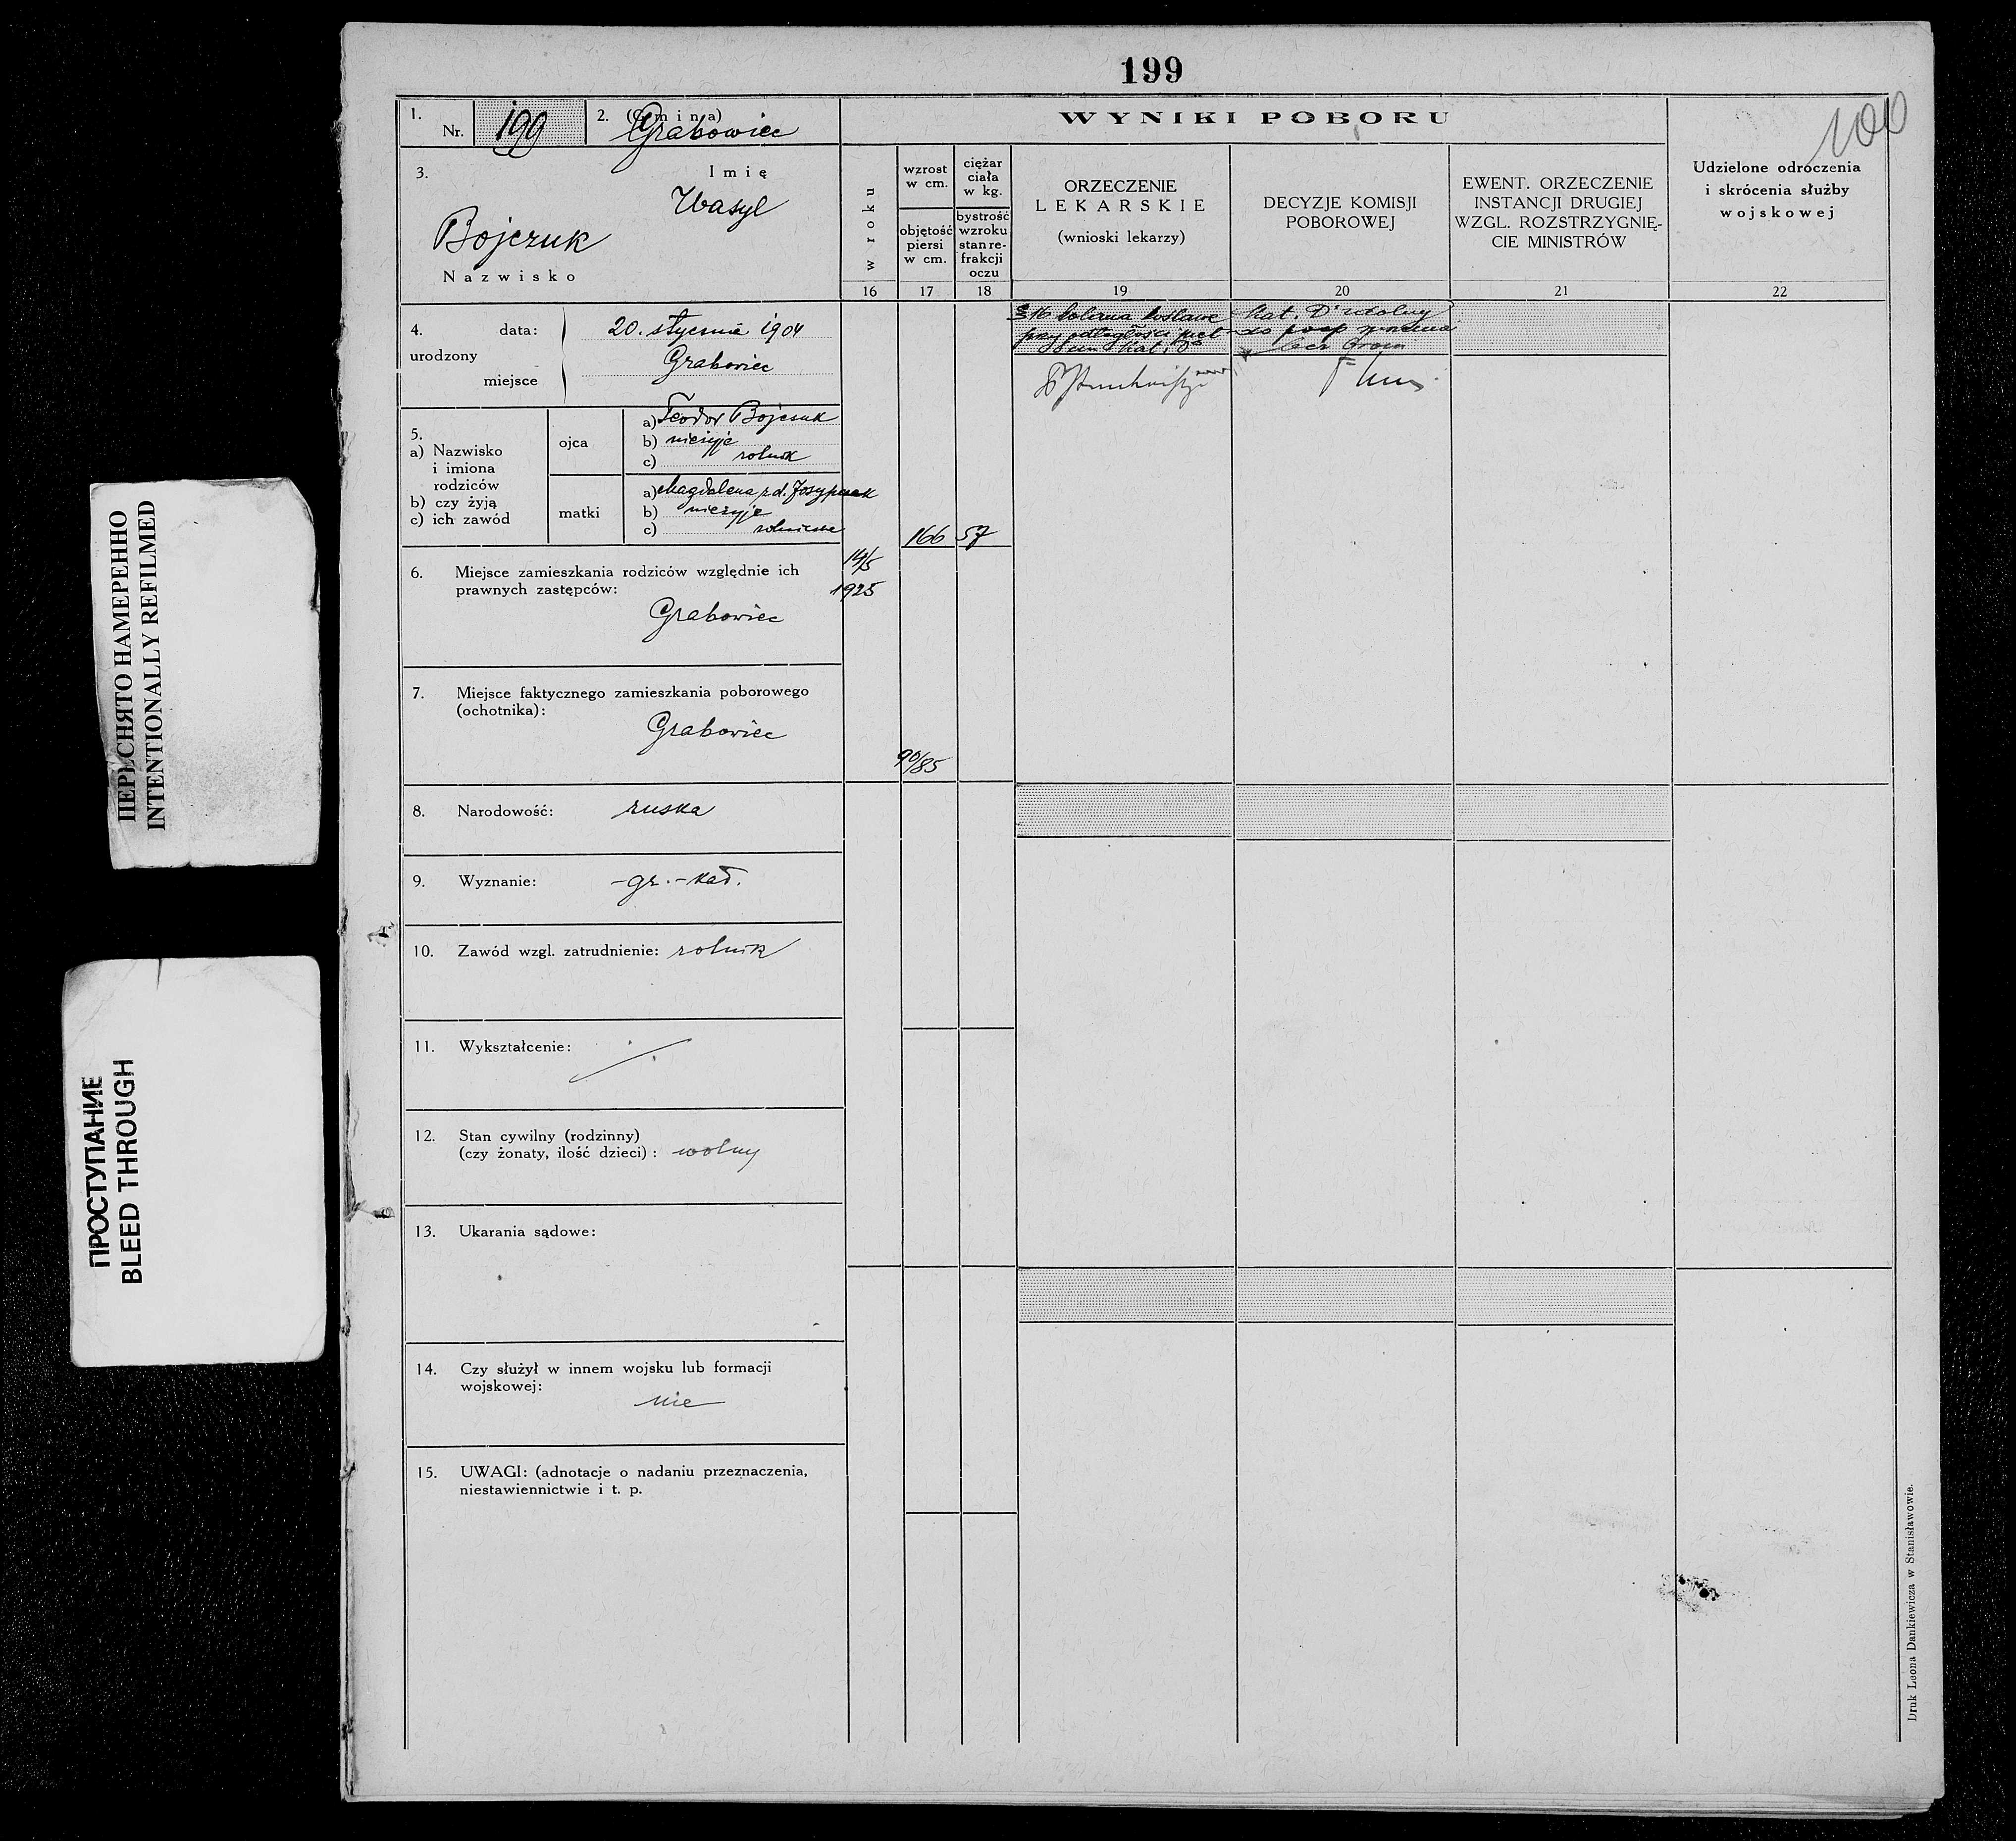 199
100
1.
Nr. 199
2. (Gmina)
Grabowiec
WYNIKI POBORU
3.
Imię
Wasyl
Bojczuk
Nazwisko
w roku
wzrost
w cm.
objętość
piersi
w cm.
ciężar
ciała
w kg.
bystrość
wzroku
stan re-
frakcji
oczu
ORZECZENIE
LEKARSKIE
(wnioski lekarzy)
DECYZJE KOMISJI
POBOROWEJ
EWENT. ORZECZENIE
INSTANCJI DRUGIEJ
WZGL. ROZSTRZYGNIĘ-
CIE MINISTRÓW
Udzielone odroczenia
i skrócenia służby
wojskowej
16 17 18 19 20 21 22
4. data: 20. stycznia 1904
urodzony
miejsce Grabowiec
§ 16 kolana koślawe
przy odległości
8 cm Kat. D
Kat. D zdolny
do posp ruszenia
bez broni
5.
a) Nazwisko
i imiona
rodziców
b) czy żyją
c) ich zawód
ojca
a) Teodor Bojczuk
b) nieżyje
c) rolnik
matki
a) Magdalena z d. Josypczuk
b) nieżyje
c) rolniczka
166 57
14/5
1925
90/85
6. Miejsce zamieszkania rodziców względnie ich
prawnych zastępców:
Grabowiec
7. Miejsce faktycznego zamieszkania poborowego
(ochotnika):
Grabowiec
8. Narodowość: ruska
9. Wyznanie: gr.-kat.
10. Zawód wzgl. zatrudnienie: rolnik
11. Wykształcenie:
12. Stan cywilny (rodzinny)
(czy żonaty, ilość dzieci) : wolny
13. Ukarania sądowe:
14. Czy służył w innem wojsku lub formacji
wojskowej:
nie
15. UWAGI: (adnotacje o nadaniu przeznaczenia,
niestawiennictwie i t. p.
Druk Leona Dankiewicza w Stanisławowie.
ПЕРЕСНЯТО НАМЕРЕННО
INTENTIONALLY REFILMED
ПРОСТУПАНИЕ
BLEED THROUGH